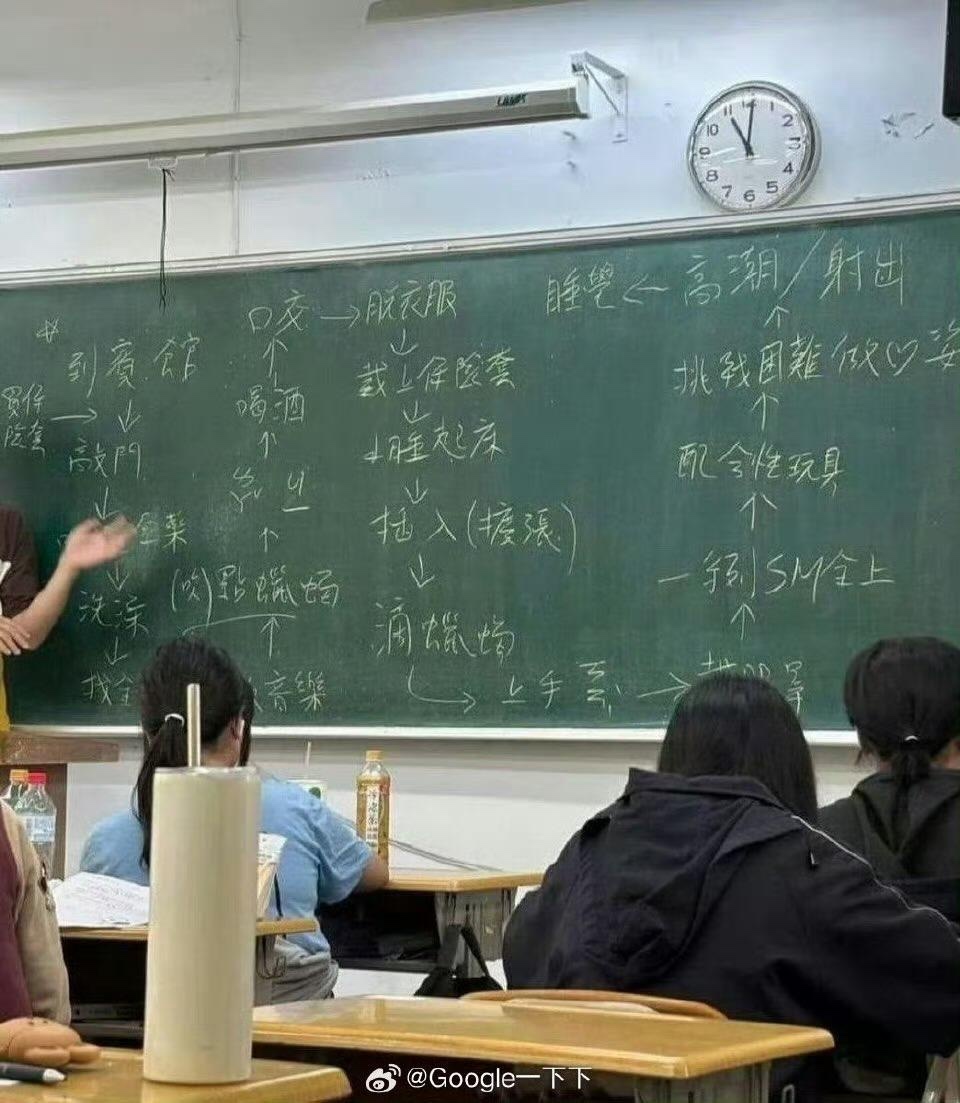 LAMPY
11 1 2 3 4 5 6 7 8 9 10
到賓館
買保
險套 →
↓
敲門
↓
藥
↓
洗澡
↓
找
音樂
↑
(吹)點蠟蠋
↑
↑
喝酒
↑
口交 → 脫衣服
↓
戴上保險套
↓
睡起床
↓
插入(擴張)
↓
滴蠟蠋
→ 上手
→
↑
SM全上
↑
配合性玩具
↑
挑戰困難做♡姿
↑
睡覺 ← 高潮/射出
@Google一下下